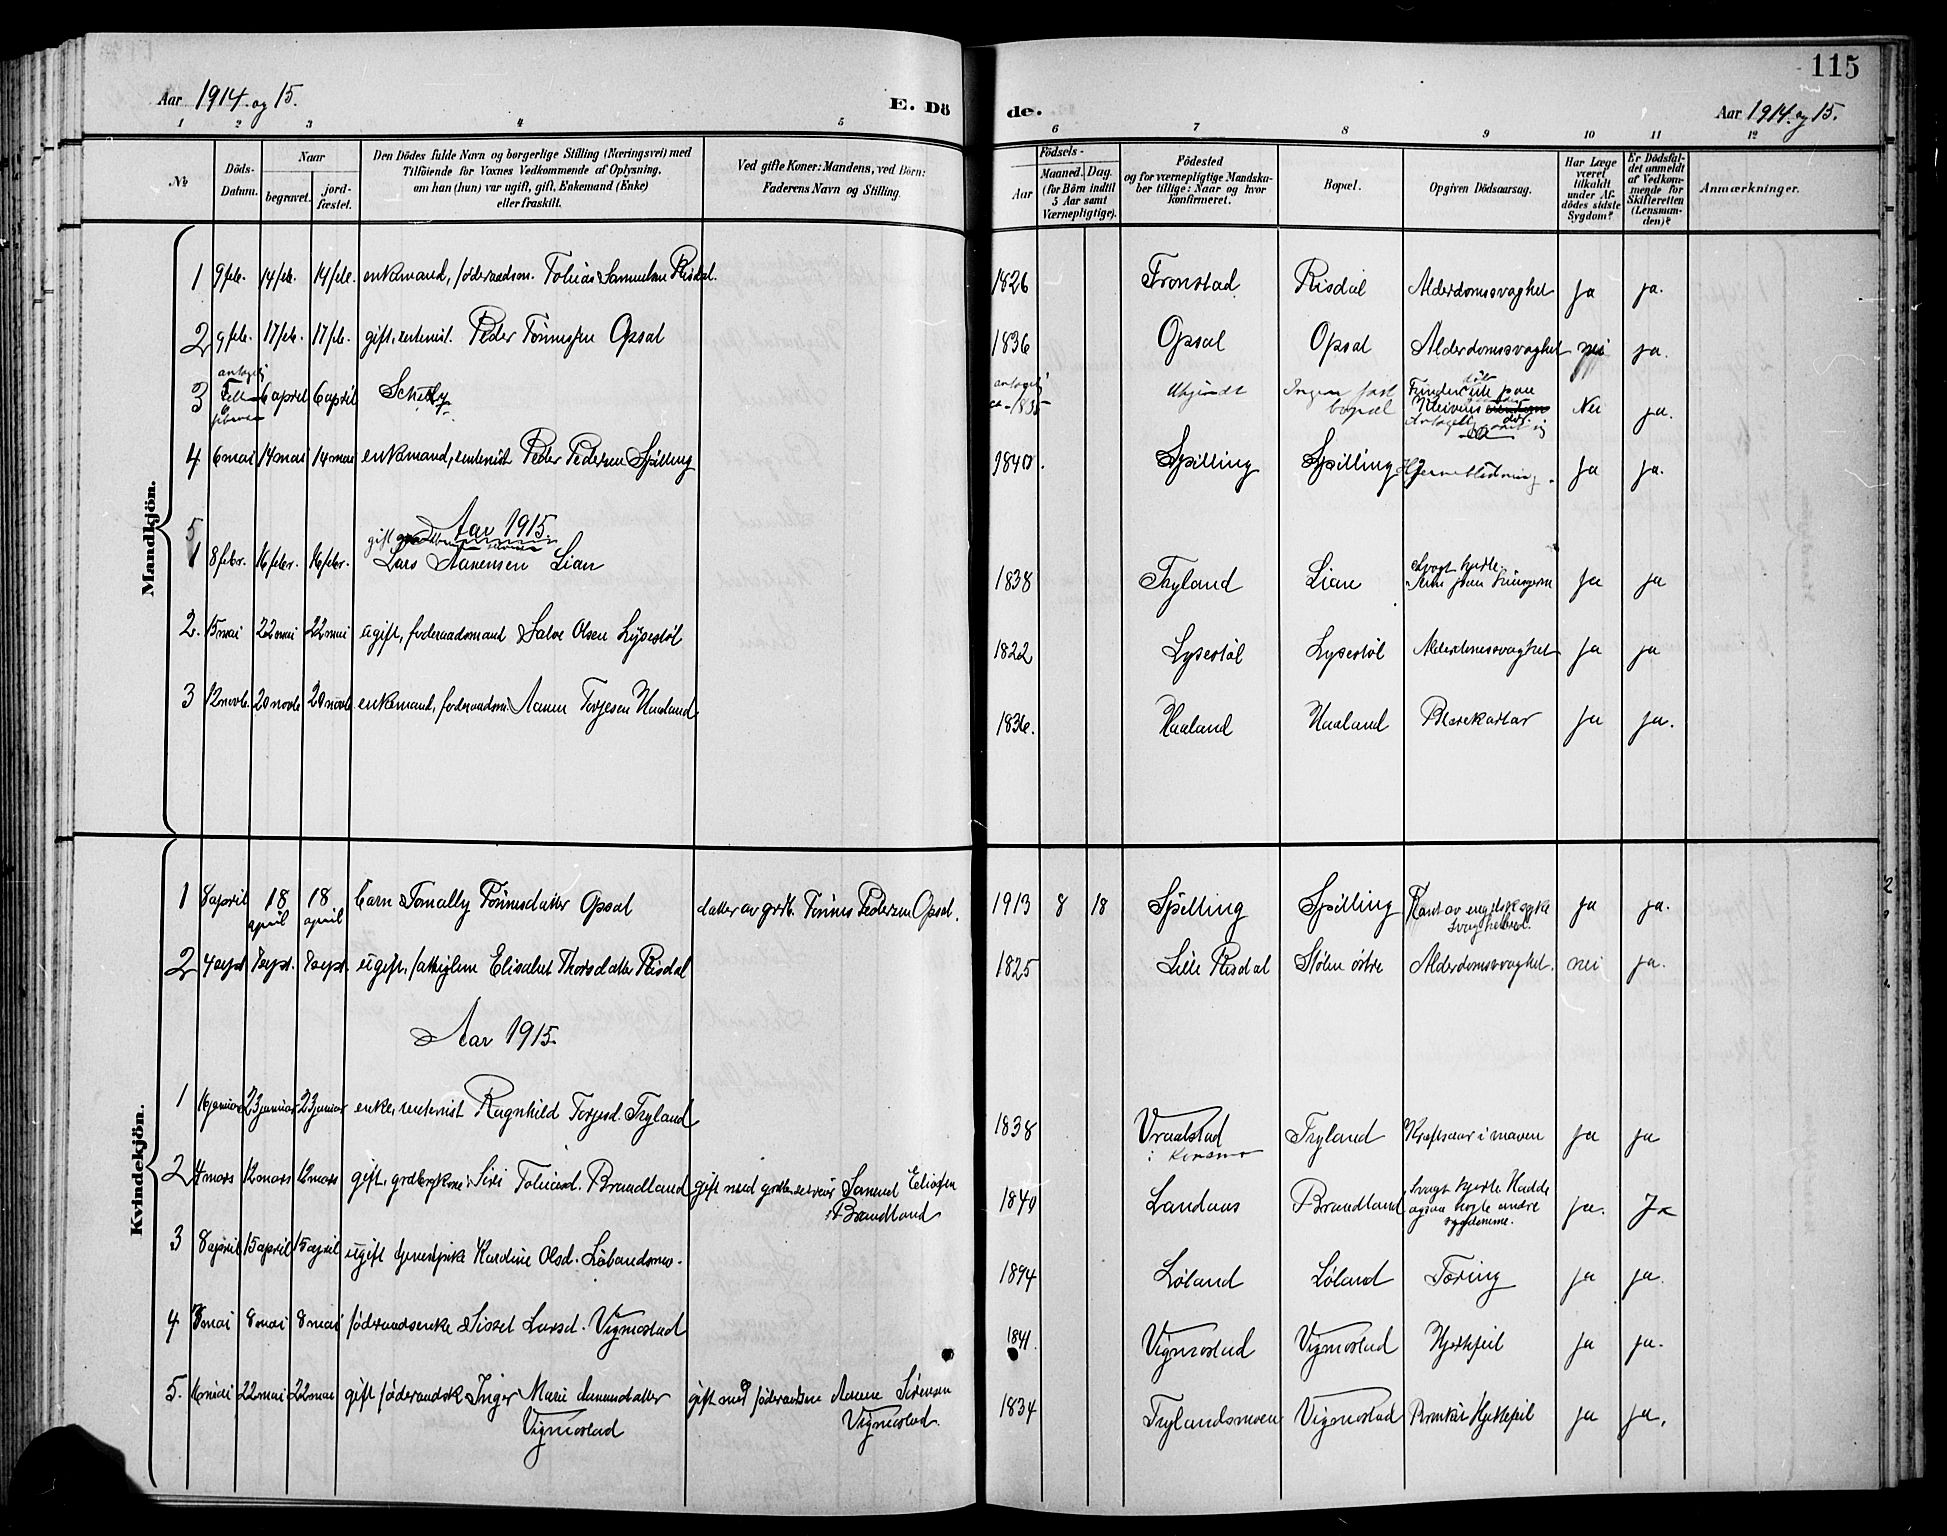 115
Aar 1914 og 15.
E. Dö
de.
Aar 1914 og 15.
1 2 3 4 5 6 7 8 9 10 11 12
No
Döds-
Datum.
Naar
begravet.
jord-
fæstet.
Den Dödes fulde Navn og borgerlige Stilling (Næringsvei) med
Tilföiende for Voxnes Vedkommende af Oplysning,
om han (hun) var ugift, gift, Enkemand (Enke)
eller fraskilt.
Ved gifte Koner: Mandens, ved Börn:
Faderens Navn og Stilling.
Födsels-
Aar
Maaned. Dag.
(for Börn indtil
5 Aar samt
Værnepligtige).
Födested
og for værnepligtige Mandska-
ber tillige: Naar og hvor
konfirmeret.
Bopæl.
Opgiven Dödsaarsag.
Har Læge
været
tilkaldt
under Af-
dödes sidste
Sygdom?
Er Dödsfal-
det anmeldt
af Vedkom-
mende for
Skifteretten
(Lensman-
den)?
Anmærkninger.
Mandkjön.
1 9 feb. 14 feb. 14 feb. enkemand, föderaadsm. Tobias Samuelsen Risdal. 1826 Tronstad Risdal Alderdomssvaghet Ja ja.
2 9 feb. 17 feb. 17 feb. gift, rentenist. Peder Tönnesen Opsal 1836 Opsal Opsal Alderdomssvaghet nei ja.
3 antagelig 6 april 6 april antagelig Ingen fast bopæl Nei ja.
4 6 mai 14 mai 14 mai enkemand, rentenist Peder Pedersen Spilling 1840. Spilling Spilling Hjerneblödning. Ja Ja.
Aar 1915.
5
1 8 febr. 16 febr. 16 febr. gift Lars Aanensen Lian 1838 Tryland Lian Svagt hjerte. Ja Ja
2. 15 mai 22 mai 22 mai ugift, foderaadsmand Salve Olsen Lysestöl 1822 Lysestöl Lysestöl Alderdomssvaghet Ja ja
3 12 novb. 20 novb. 20 novb. enkemand, foderaadsm. Aanen Torjesen Haaland. 1836. Haaland Haaland Blærekatar Ja Ja.
Kvindekjön.
1 8 april 18 april 18 april barn Tomally Tönnesdatter Opsal datter av grdb. Tönnes Pedersen Opsal. 1913 8 18 Spilling Spilling Ja Ja.
2 4 sept 8 sept. 8 sept. ugift, Elisabet Thorsdatter Risdal 1825 Lille Risdal Stölen östre Alderdomssvaghet. nei ja.
Aar 1915.
1 16 januar 23 januar 23 januar enke, rentenist Ragnhild Torjesd. Tryland 1838 Vraalstad Tryland Kræftsaar i maven Ja Ja
2 4 mars 12 mars 12 mars gift, Siri Tobiasd. Brandland gift med Samuel Eliassen
Brandland 1840 Landaas Brandland Svagt hjerte. Hadde
ogsaa nogle andre
sygdomme. Ja. Ja
3 8 april 15 april 15 april ugift tjenestpike Karoline Olsd. 1894 Löland Löland Tæring Ja Ja.
4 mai 8 mai 8 mai föderaadsenke Sissel Larsd. Vigmostad 1841. Vigmostad Vigmostad Hjertefeil Ja Ja.
5. mai 22 mai 22 mai gift föderaadsk Inger Marie Aanundatter
Vigmostad gift med föderaadsm Aanen Sörensen
Vigmostad. 1834 Trylandsmoen Vigmostad Hjertefeil Ja Ja.